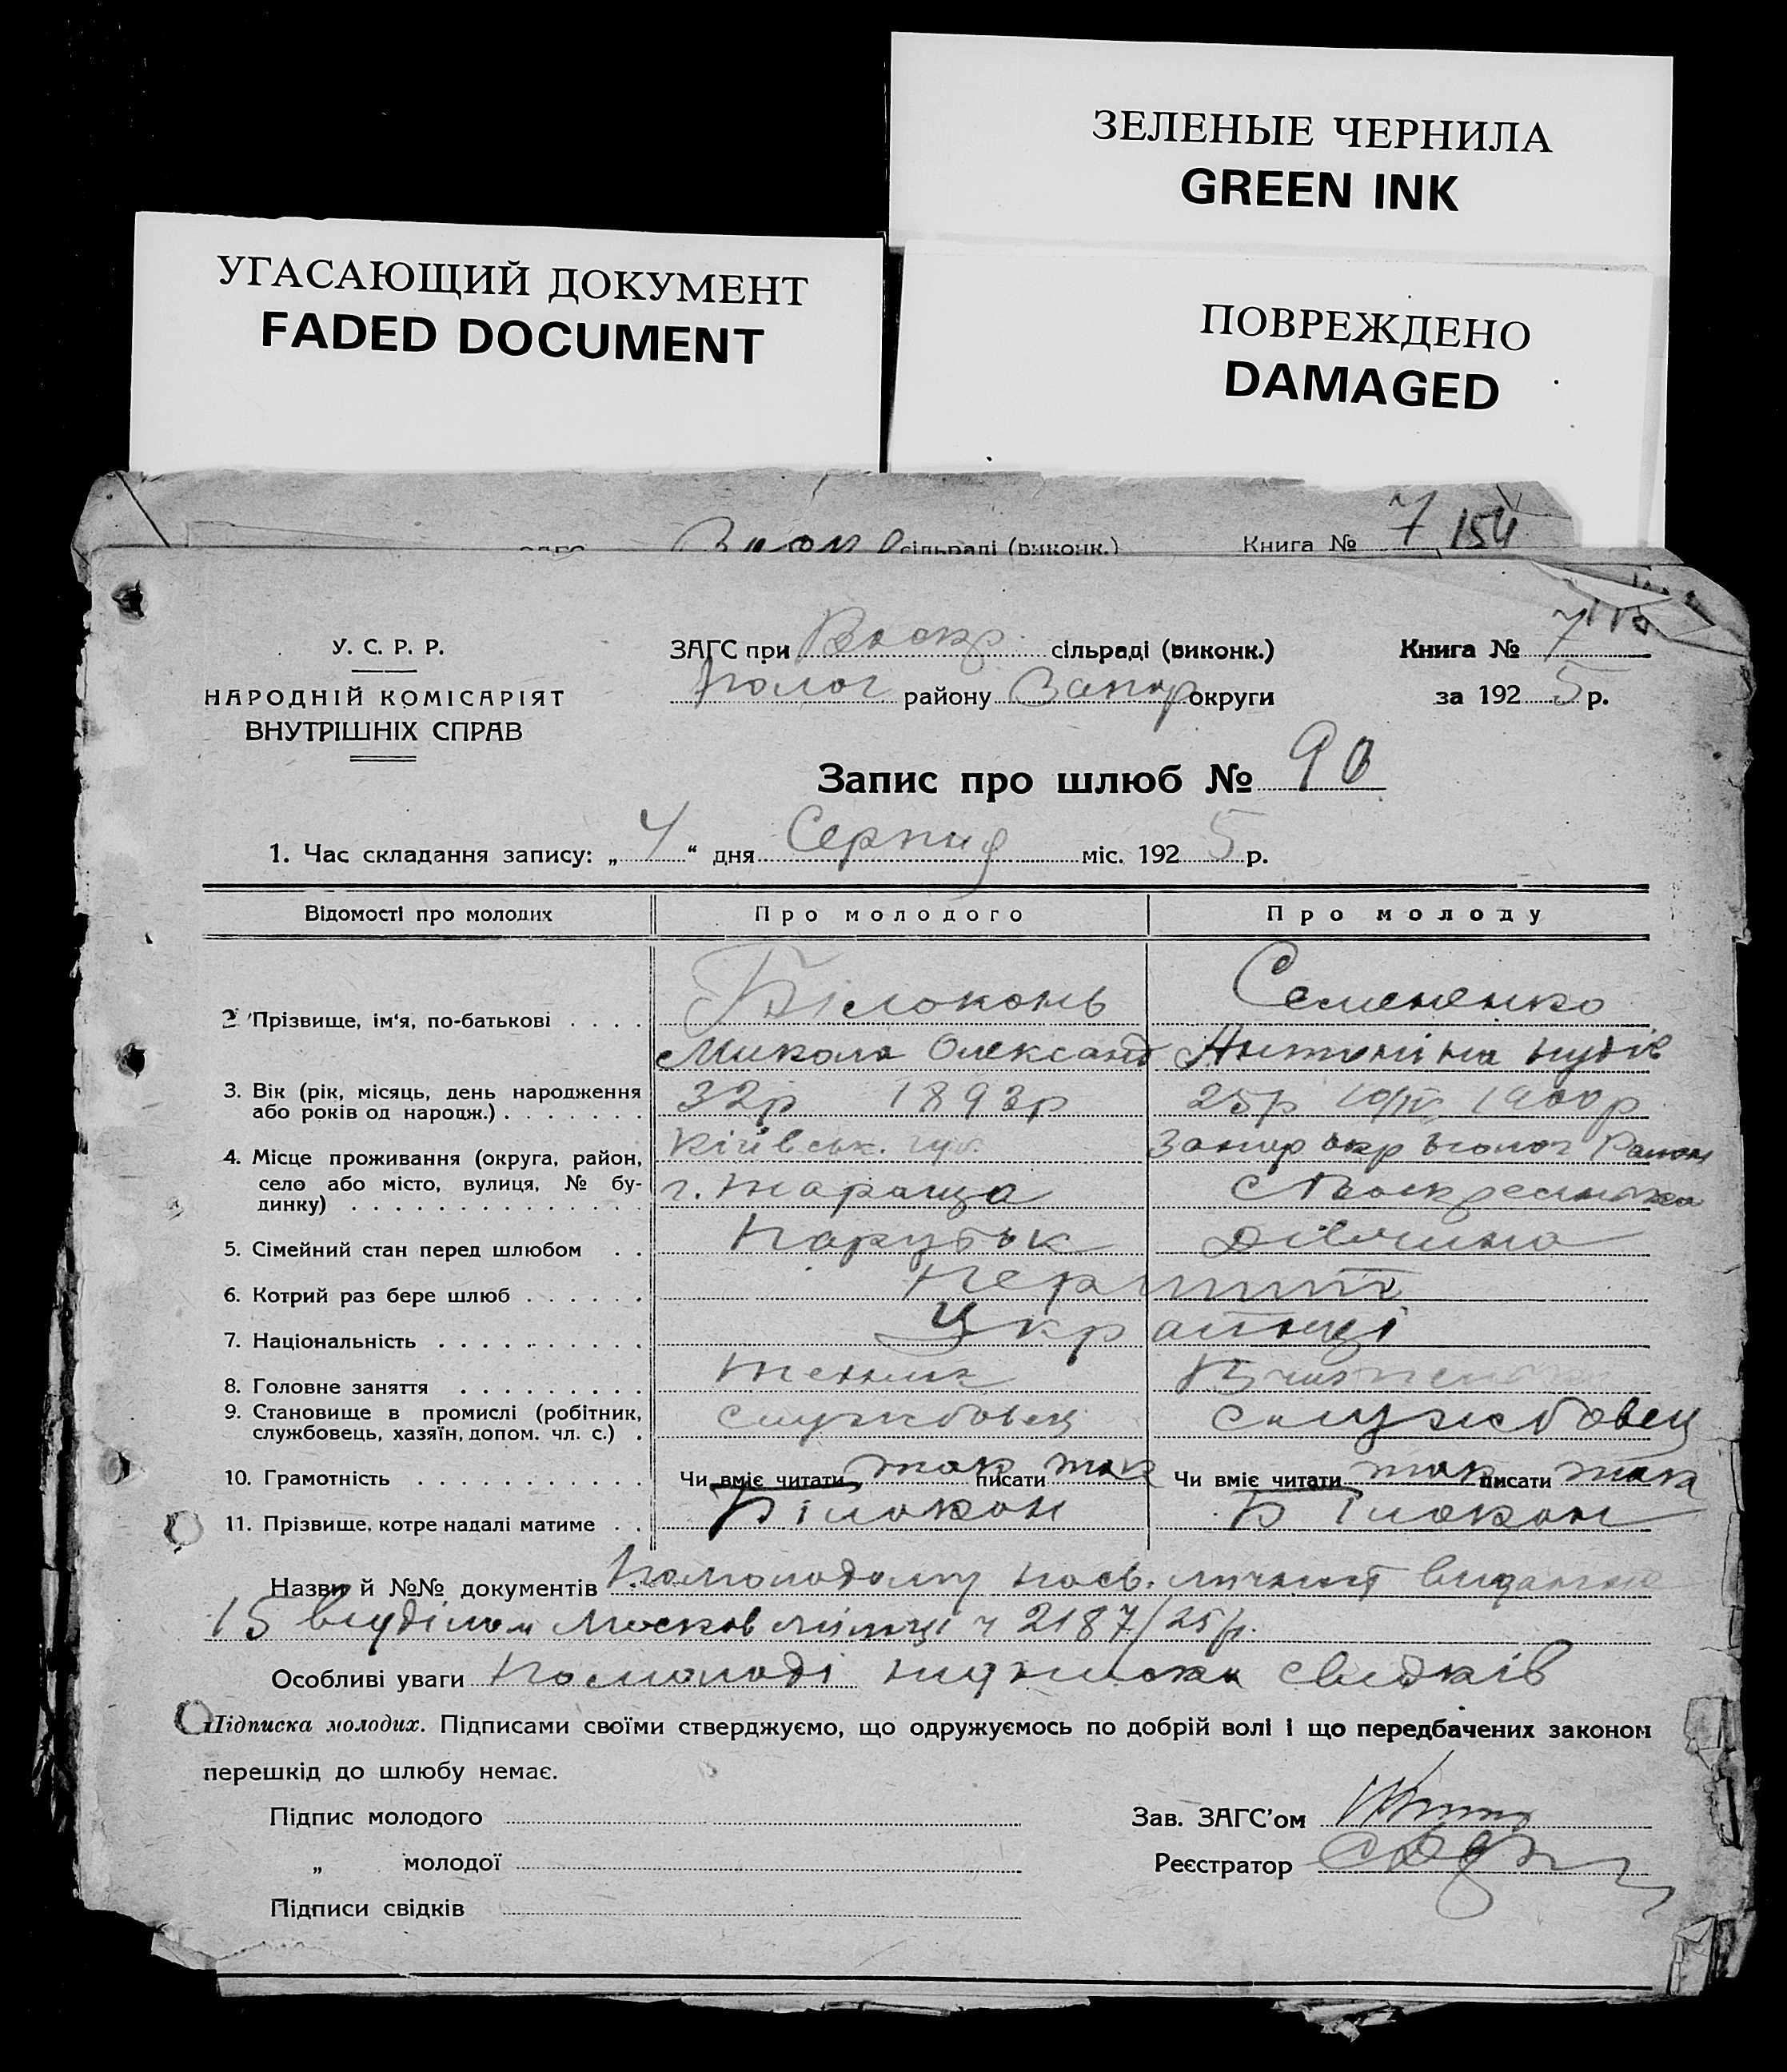 ЗЕЛЕНЫЕ ЧЕРНИЛА
GREEN INK
УГАСАЮЩИЙ ДОКУМЕНТ
FADED DOCUMENT
ПОВРЕЖДЕНО
DAMAGED
сільраді (виконк.) Книга № 7 154
У. С. Р. Р.
НАРОДНІЙ КОМІСАРІЯТ
ВНУТРІШНІХ СПРАВ
ЗАГС при Воскр сільраді (виконк.) Книга № 7
Полог району Запор округи за 1925 р.
Запис про шлюб № 90
1. Час складання запису: „ 4 “ дня Серпня міс. 1925 р.
Відомості про молодих Про молодого Про молоду
2. Прізвище, ім'я, по-батькові . . . . Білоконь Семененко
Микола Олександ Антоніна
3. Вік (рік, місяць, день народження
або років од народж.) . . . . . . . 32р 1893р 25р 10/IV 1900р
4. Місце проживання (округа, район,
село або місто, вулиця, № бу-
динку) . . . . . . . . . . . . . .
Київськ. губ. Запор окр Полог Район
г. Тараща с Воскресенка
5. Сімейний стан перед шлюбом . . Парубок Дівчина
6. Котрий раз бере шлюб . . . . . . Перший
7. Національність . . . . . . . . . . Українці
8. Головне заняття . . . . . . . . . Технік
9. Становище в промислі (робітник,
службовець, хазяїн, допом. чл. с.) . службовец службовец
10. Грамотність . . . . . . . . . . . Чи вміє читати так писати так Чи вміє читати так писати так
11. Прізвище, котре надалі матиме . . Білокон Білокон
Назви й №№ документів По молодому посв. личност видан
15 виділом Москов міліції ч 2187/25р.
Особливі уваги По молоді підписка свидків
Підписка молодих. Підписами своїми стверджуємо, що одружуємось по добрій волі і що передбачених законом
перешкід до шлюбу немає.
Підпис молодого Зав. ЗАГС'ом
„ молодої Реєстратор
Підписи свідків